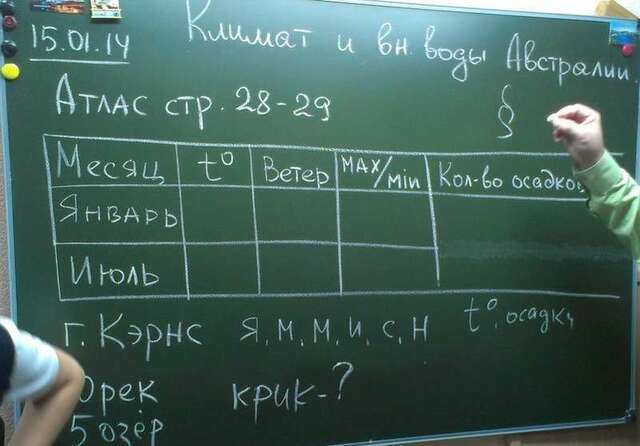 15.01.14
Климат и вн. воды Австралии
Атлас стр. 28-29 §
Месяц t° Ветер max/min Кол-во осадков
Январь
Июль
г. Кэрнс Я, М, М, И, С, Н t°, осадки
Юрек крик-?
5 озёр